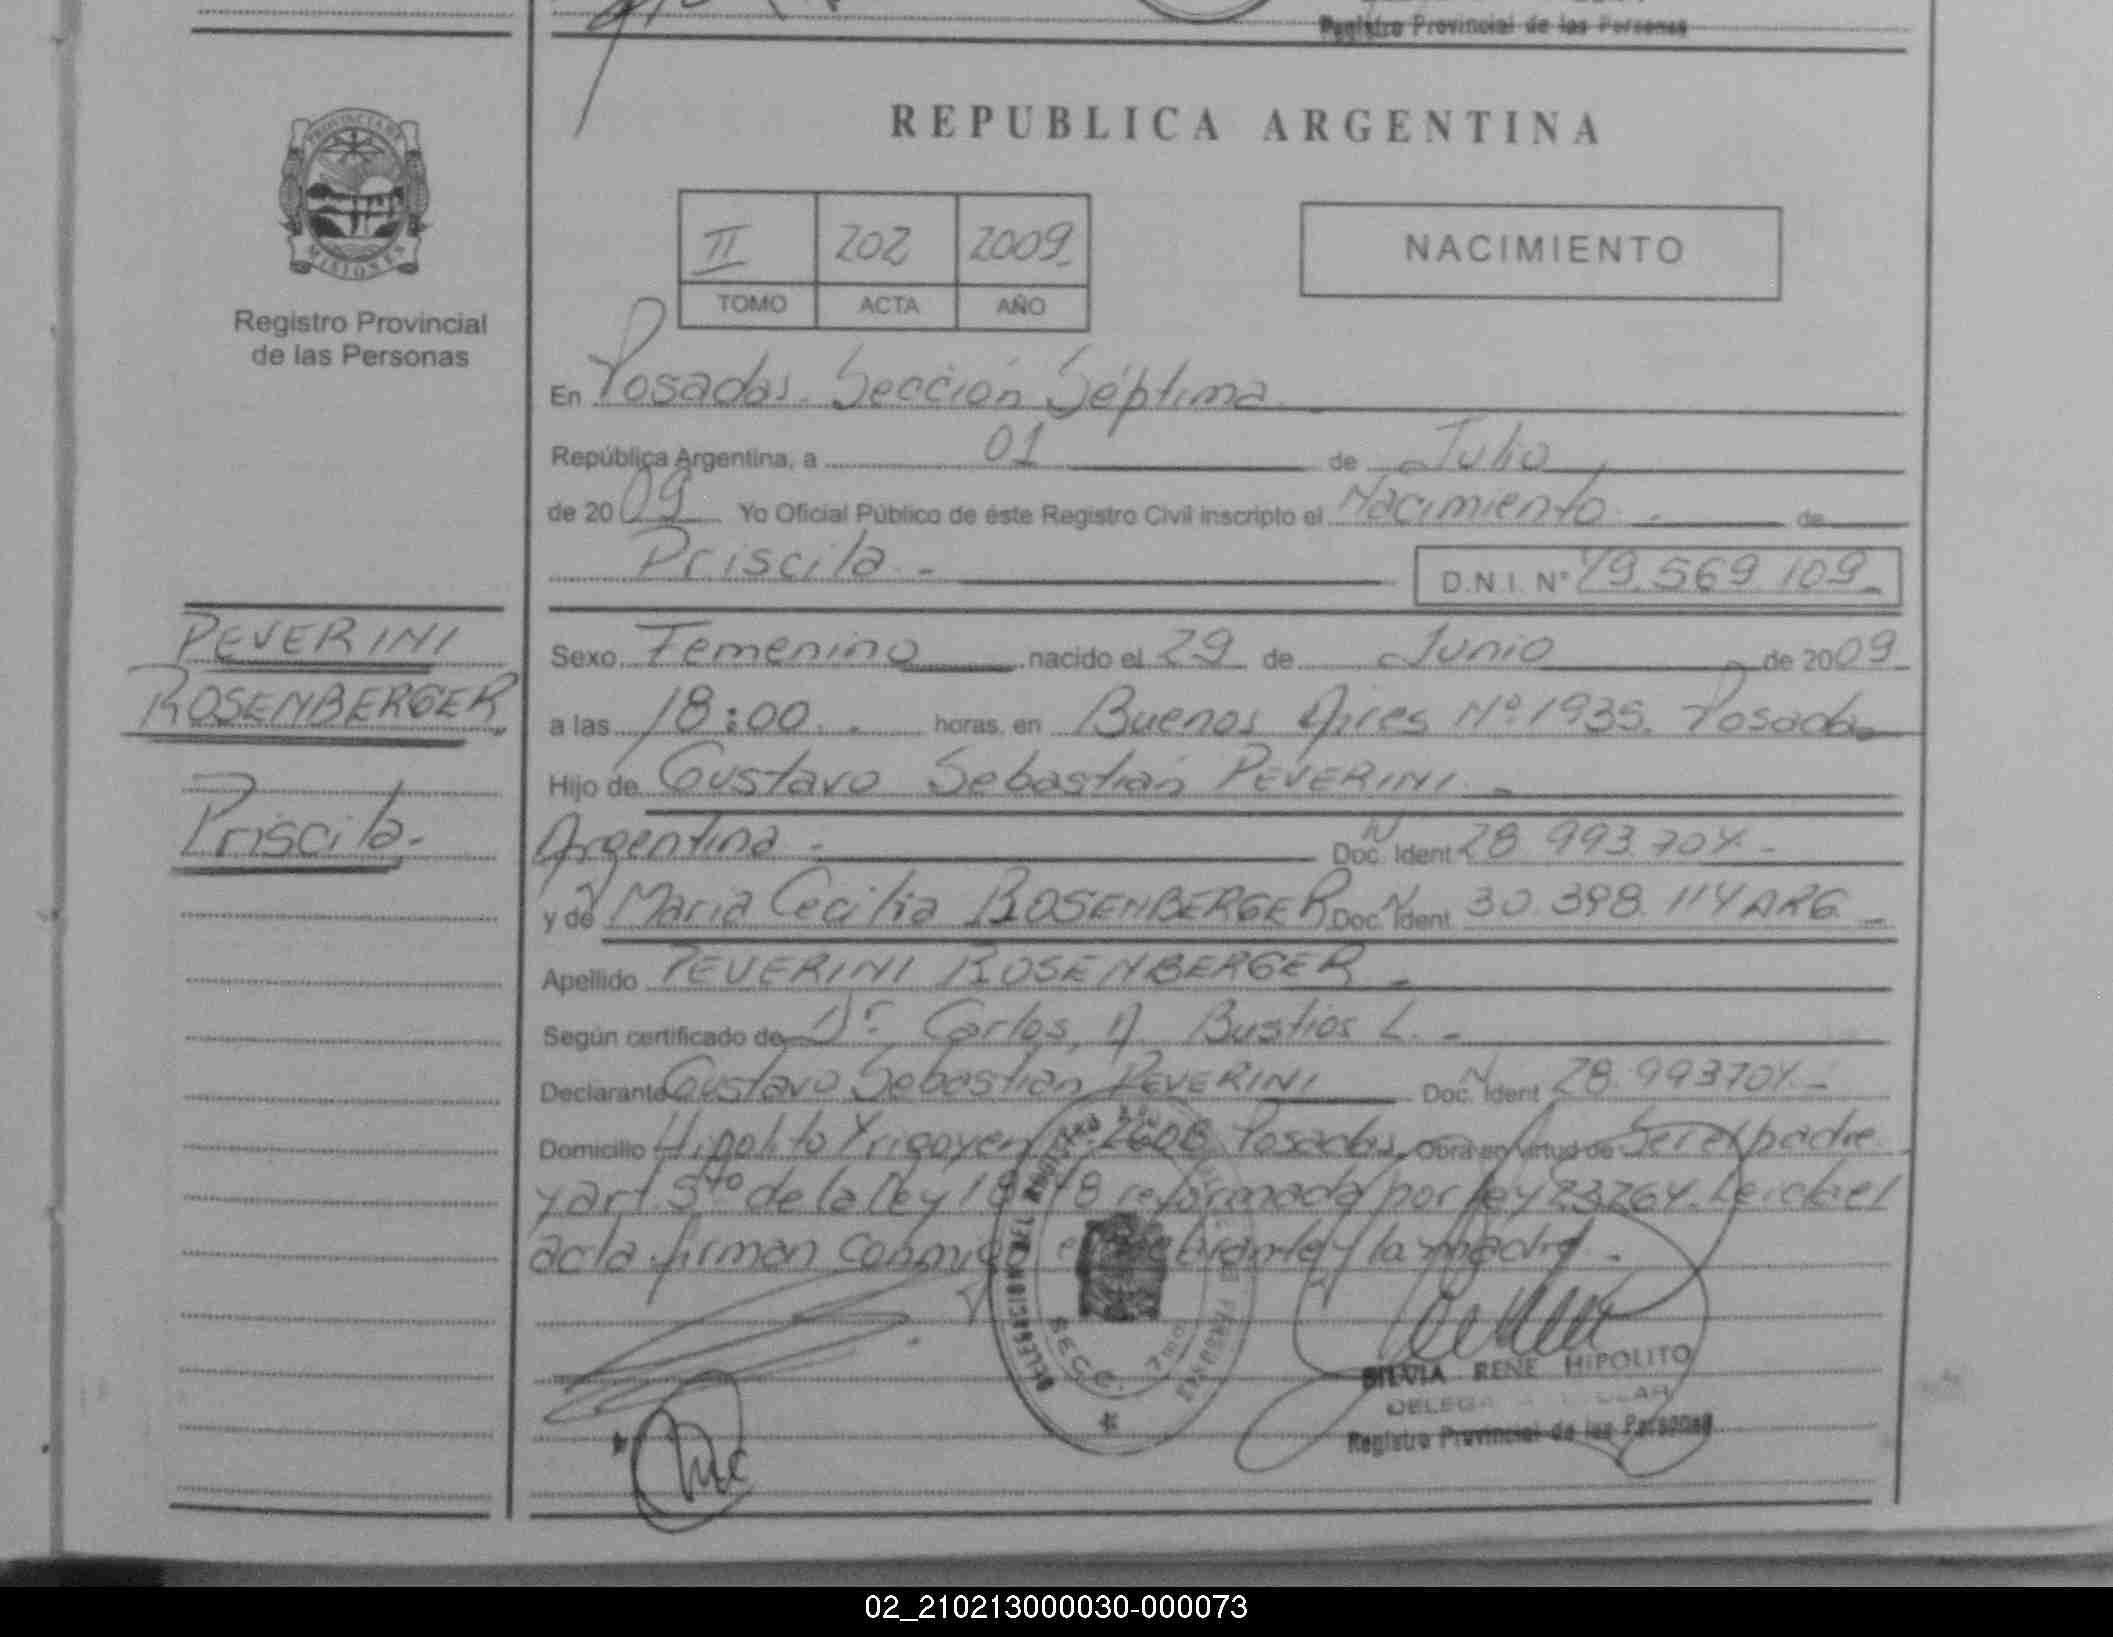 Registro Provincial de las Personas
PROVINCIA DE
MISIONES
Registro Provincial
de las Personas
REPUBLICA ARGENTINA
II 202 2009
TOMO ACTA AÑO
NACIMIENTO
En Posadas. Sección Séptima
República Argentina, a 01 de Julio
de 2009 Yo Oficial Público de éste Registro Civil inscripto el Nacimiento de
Priscila.- D.N.I. N° 49.569.109
PEVERINI
ROSENBERGER
Priscila.-
Sexo Femenino nacido el 29 de Junio de 2009
a las 18:00.- horas, en Buenos Aires Nº 1935. Posadas
Hijo de Gustavo Sebastián PEVERINI.-
Argentina.- Doc. Ident 28.993.704.-
y de María Cecilia ROSENBERGER Doc. Ident 30.398.114 ARG.-
Apellido PEVERINI ROSENBERGER.-
Según certificado de Dr. Carlos, A. Bustios L.-
Declarante Gustavo Sebastián PEVERINI Doc. Ident 28.993704.-
Domicilio Hipolito Yrigoyen 2608 Posadas, Obra en virtud de Ser el padre
y art. 5to de la ley 18 48 reformada por ley 23264. Leida el
acta firman conmigo el y la madre.-
DELEGACION DEL REGISTRO
SECC. 7ma
SILVIA RENE HIPOLITO
Registro Provincial de las Personas
02_210213000030-000073